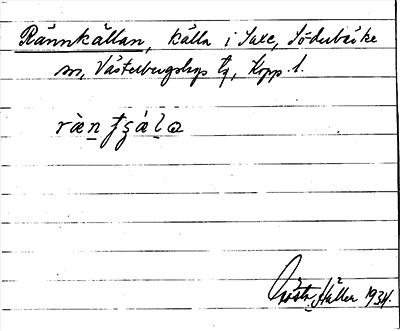 Rännkällan, källa i Saxe, Söderbärke
sn, Västerbergslags tg, Kopp. l.
Gösta Häller 1934.